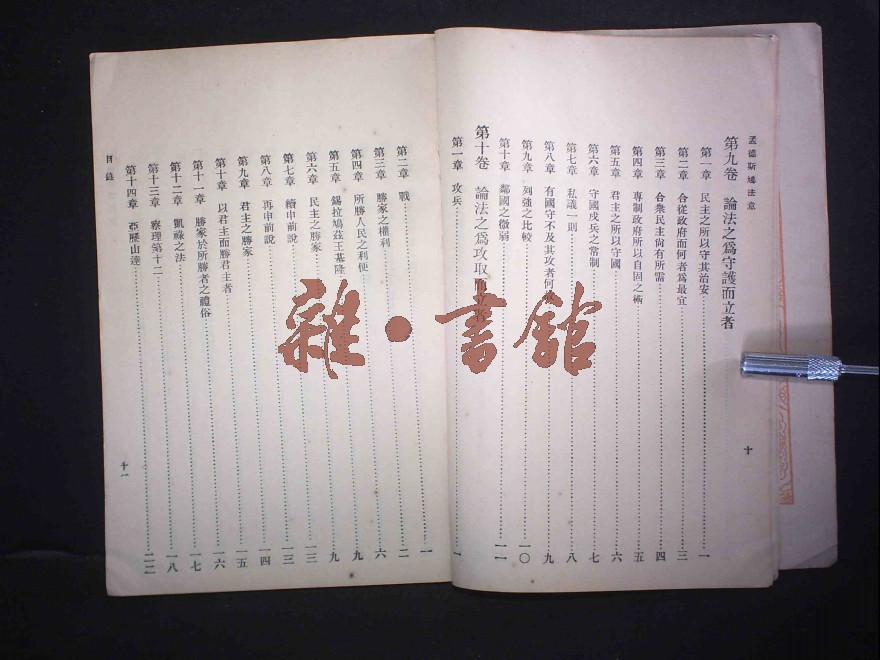 孟德斯鳩法意
第九卷 論法之爲守護而立者
第一章 民主之所以守其治安 一
第二章 合從政府而何者爲最宜 三
第三章 合衆民主尙有所需 四
第四章 專制政府所以自固之術 五
第五章 君主之所以守國 六
第六章 守國戍兵之常制 七
第七章 私議一則 八
第八章 有國守不及其攻者何 九
第九章 列強之比較 一〇
第十章 鄰國之微弱 一一
第十卷 論法之爲攻取而立者
第一章 攻兵 一
十
第二章 戰 二
第三章 勝家之權利 六
第四章 所勝人民之利便 九
第五章 錫拉鳩茲王基隆 九
第六章 民主之勝家 一三
第七章 續申前說 一三
第八章 再申前說 一四
第九章 君主之勝家 一五
第十章 以君主而勝君主者 一六
第十一章 勝家於所勝者之禮俗 一七
第十二章 凱祿之法 一八
第十三章 察理第十二
第十四章 亞歷山達 二二
目錄
十一
雜·書館